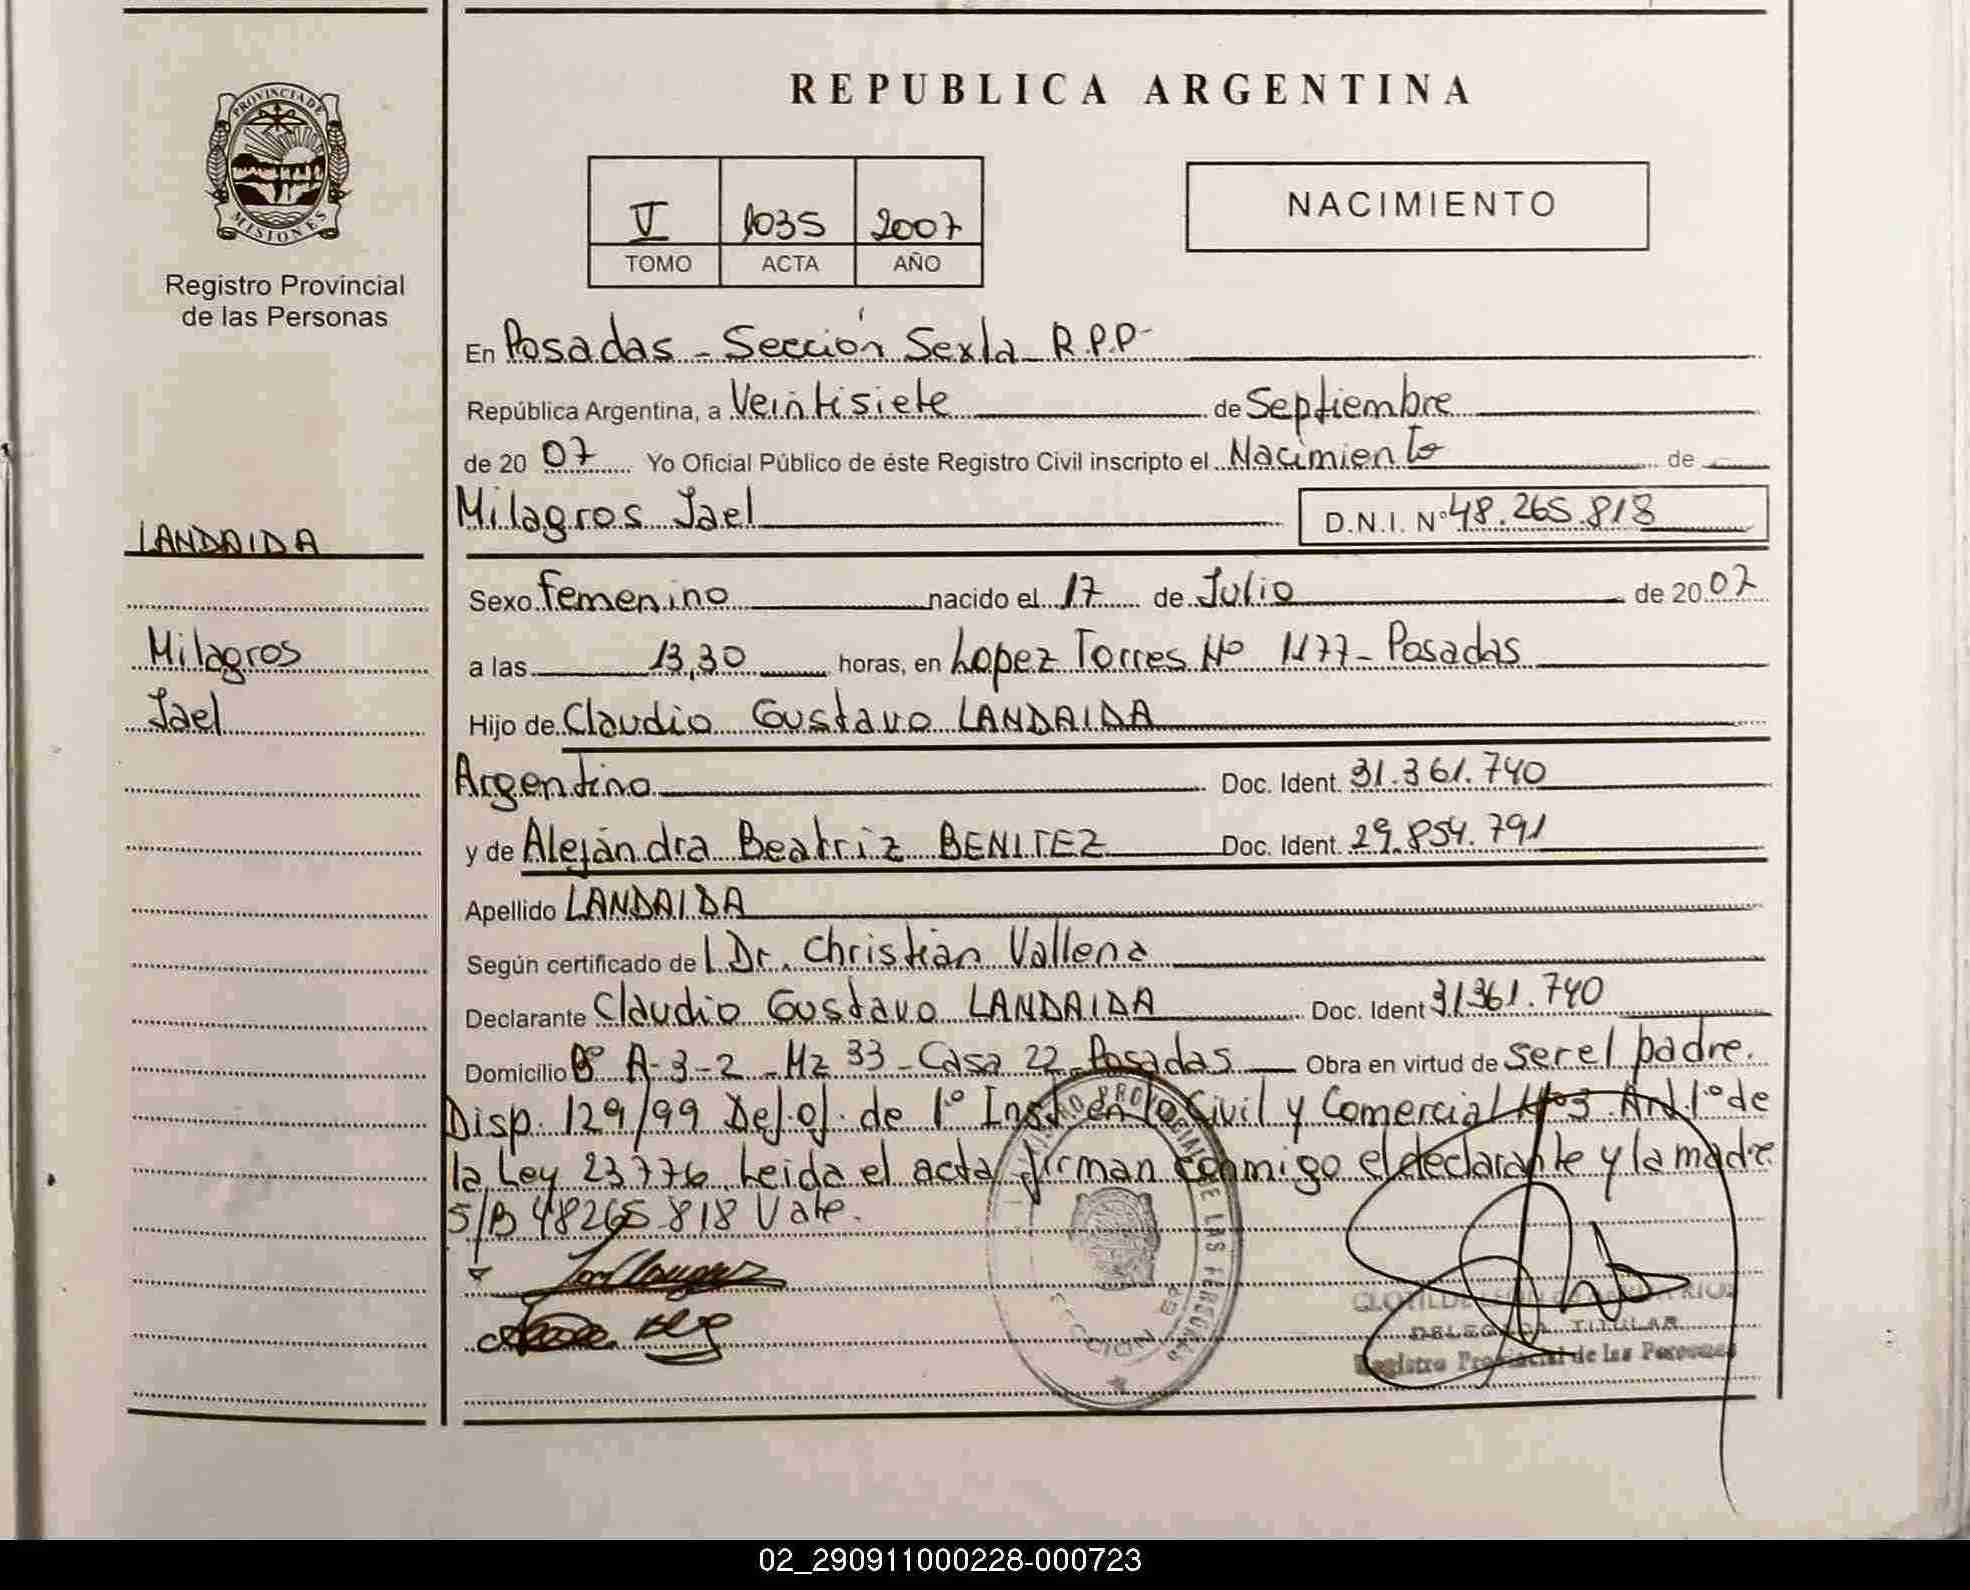 REPUBLICA ARGENTINA
PROVINCIA DE
MISIONES
Registro Provincial
de las Personas
V 1035 2007
TOMO ACTA AÑO
NACIMIENTO
En Posadas - Sección Sexta R.P.P-
República Argentina, a Veintisiete de Septiembre
de 20 07 Yo Oficial Público de éste Registro Civil inscripto el Nacimiento de
Milagros Jael D.N.I. Nº 48.265.818
LANDAIDA
Milagros
Jael
Sexo femenino nacido el 17 de Julio de 20 07
a las 13,30 horas, en Lopez Torres Nº 1177 - Posadas
Hijo de Claudio Gustavo LANDAIDA
Argentino Doc. Ident. 31.361.740
y de Alejandra Beatriz BENITEZ Doc. Ident. 29.854.791
Apellido LANDAIDA
Según certificado de l Dr. Christian Vallena
Declarante Claudio Gustavo LANDAIDA Doc. Ident 31361.740
Domicilio Bº A-3-2 - Mz 33 - Casa 22 Posadas Obra en virtud de ser el padre.
Disp. 129/99 Def. of. de 1º Inst en lo Civil y Comercial Nº3 Art. 1º de
la Ley 23776 Leida el acta firman conmigo el declarante y la madre
S/B 48265.818 Vale.
REGISTRO PROVINCIAL DE LAS PERSONAS
SECCION
DELEGADA TITULAR
Registro Provincial de las Personas
02_290911000228-000723